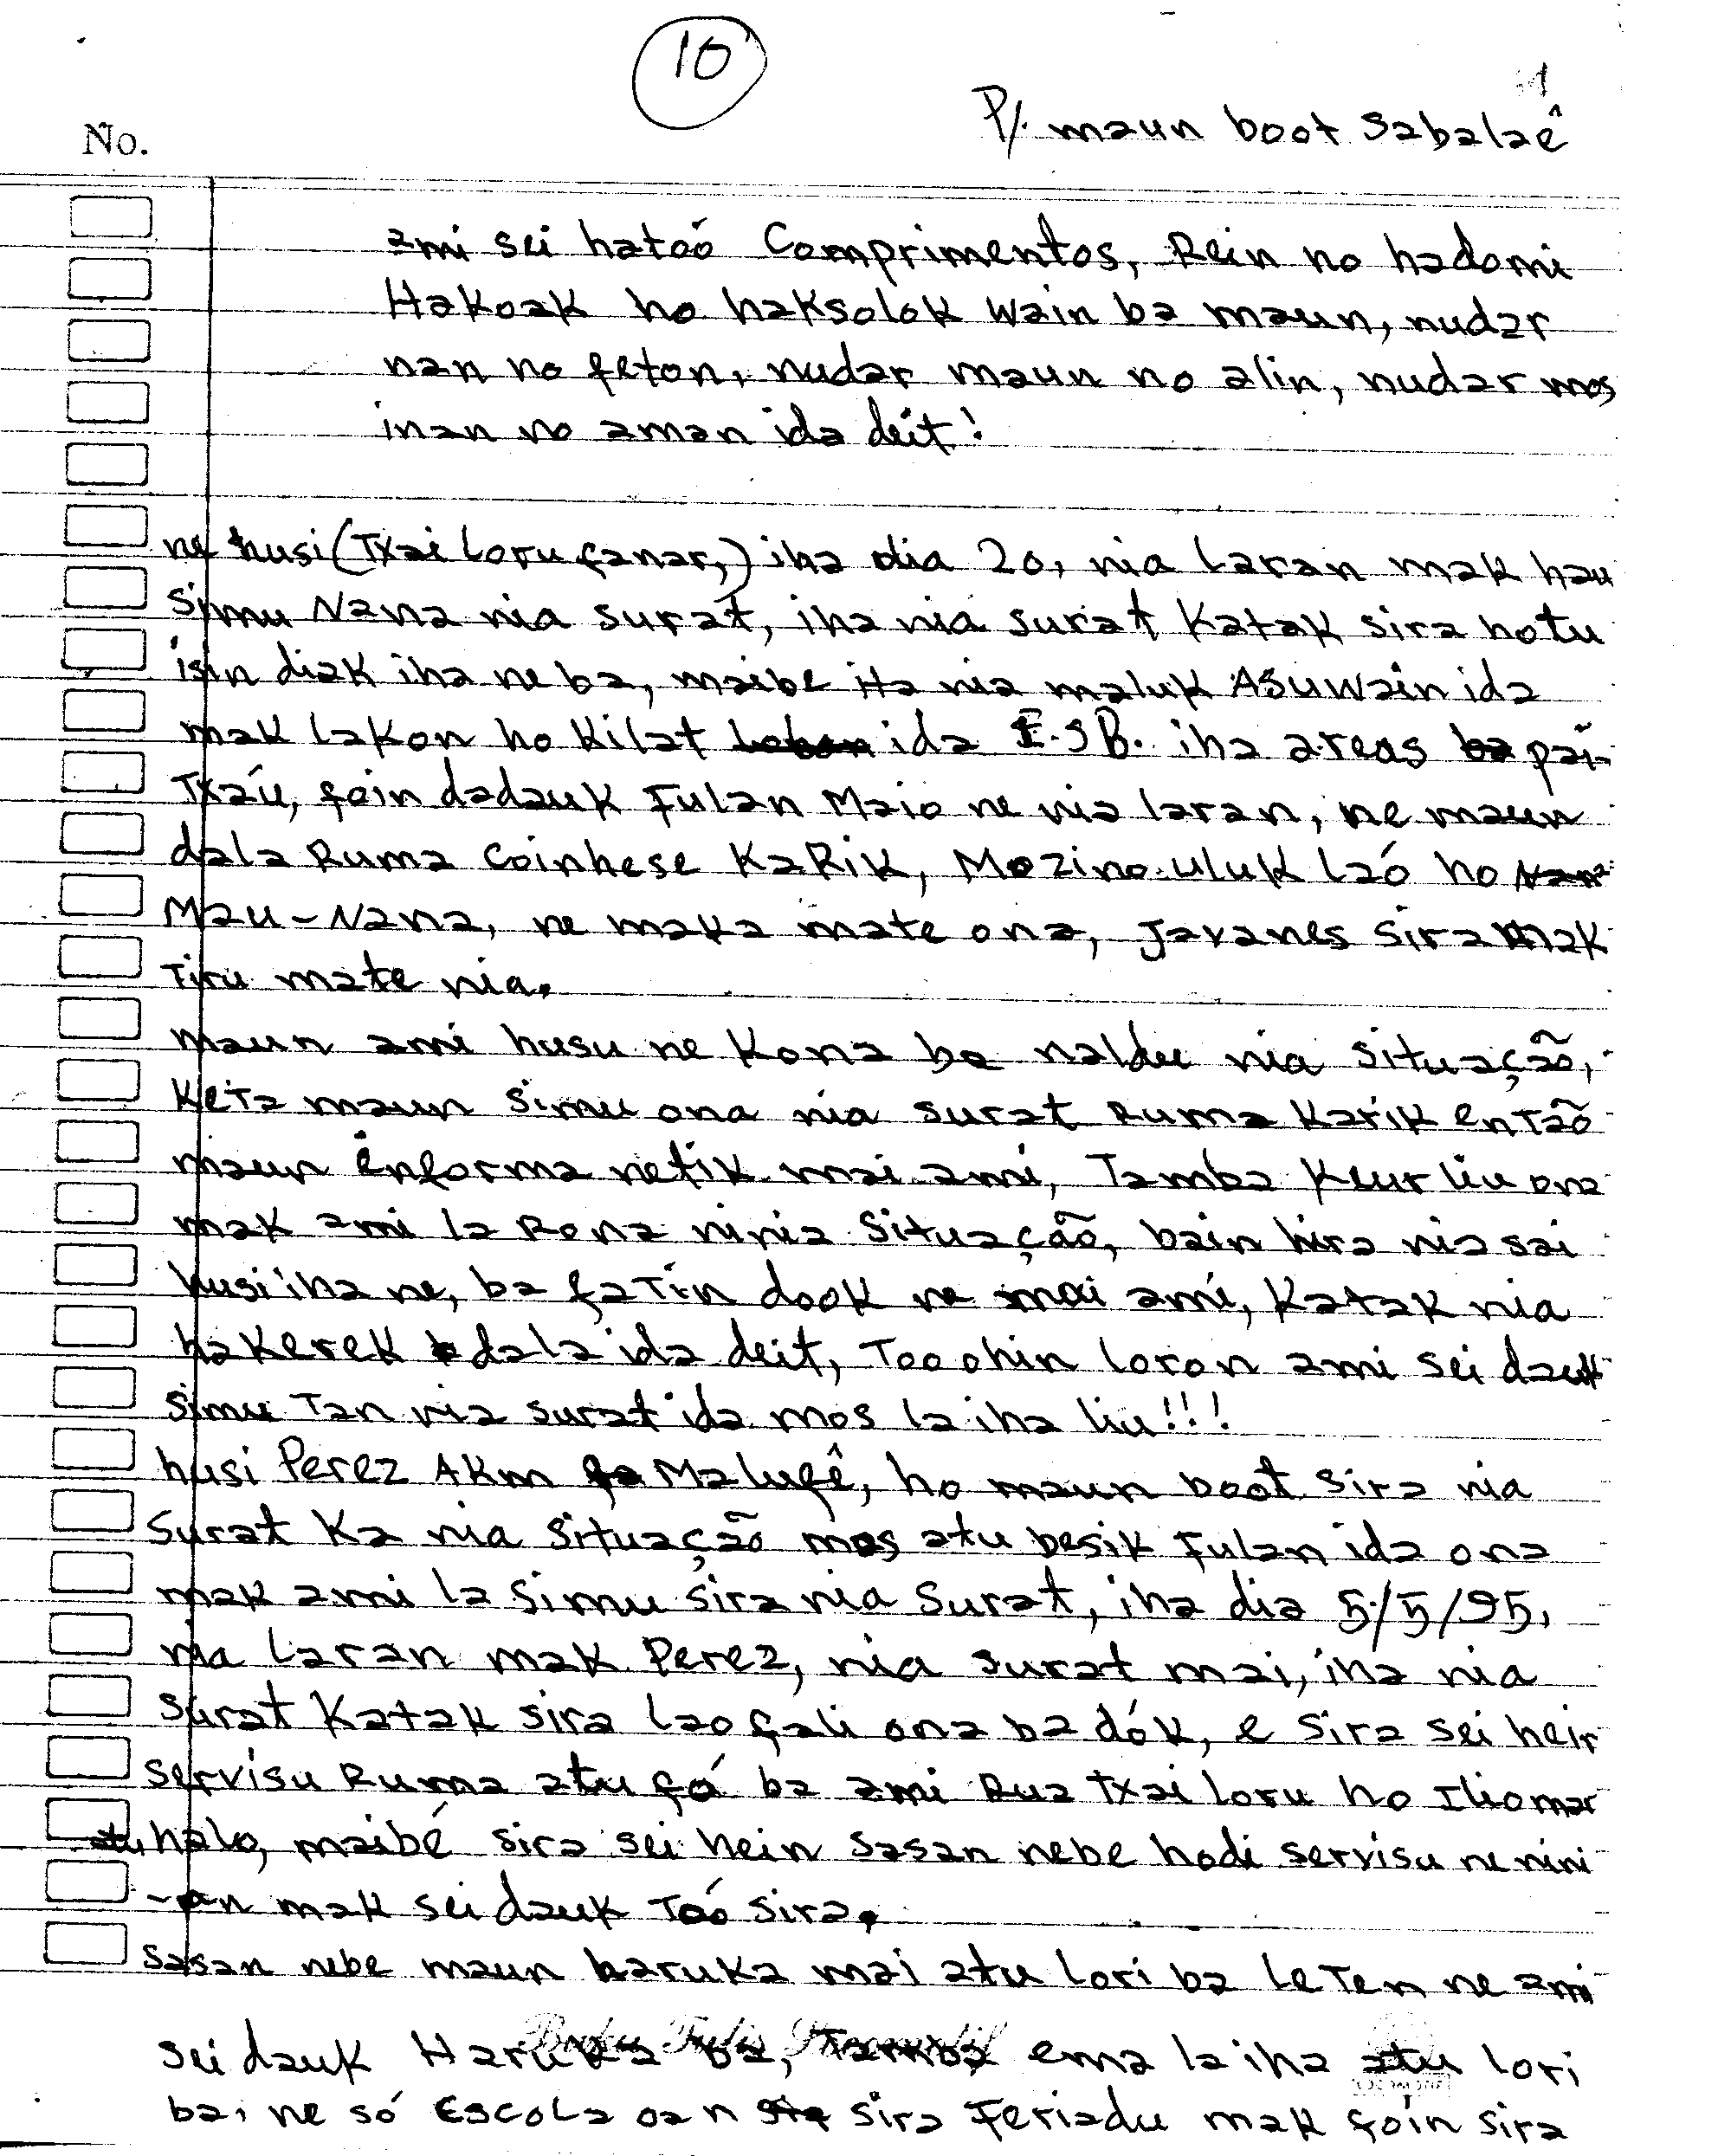 10
P/. maun boot Sabalaê
No.
ami sei hatoó Comprimentos, Rein no hadomi
Hakoak ho haksolok wain ba maun, nudar
nan no feton, nudar maun no alin, nudar mos
inan no aman ida deit!
ne husi (Txai Loru fanar,) iha dia 20, nia laran mak hau
Simu Nana nia surat, iha nia surat Katak sira hotu
isin diak iha ne ba, maibe ita nia maluk Asuwain ida
mak Lakon ho Kilat ida F.S B. iha areas pai-
Txaú, foin dadauk Fulan Maio ne nia laran, ne maun
dala Ruma Coinhese KaRiK, Mozino uluk laó ho
Mau-Nana, ne maka mate ona, Javanes Sira mak
Tiru mate nia.
maun ami husu ne Kona ba naldu nia situação,
Keta maun simu ona nia surat Ruma Karik então
maun informa netik mai ami, Tamba Kleur liu ona
mak ami la Rona ninia Situação, bain hira nia sai
husi iha ne, ba fatin dook ne mai ami, Katak nia
hakerek dala ida deit, Too ohin loron ami sei dauk
Simu Tan nia surat ida mos la iha liu!!!
husi Perez AKm Malufê, ho maun boot sira nia
Surat Ka nia Situação mos atu besik Fulan ida ona
mak ami la Simu sira nia Surat, iha dia 5/5/95,
nia laran mak Perez, nia surat mai, iha nia
Surat Katak sira lao fali ona ba dók, e sira sei hein
servisu Ruma atu fó ba ami Rua Txai loru ho Iliomar
atu halo, maibé sira sei hein Sasan nebe hodi servisu ne nini
-an mak sei dauk Toó sira.
Sasan nebe maun haruka mai atu lori ba leten ne ami
sei dauk Haruka ba, Tamba ema la iha atu lori
ba, ne só Escola oan sira Feriadu mak foin sira